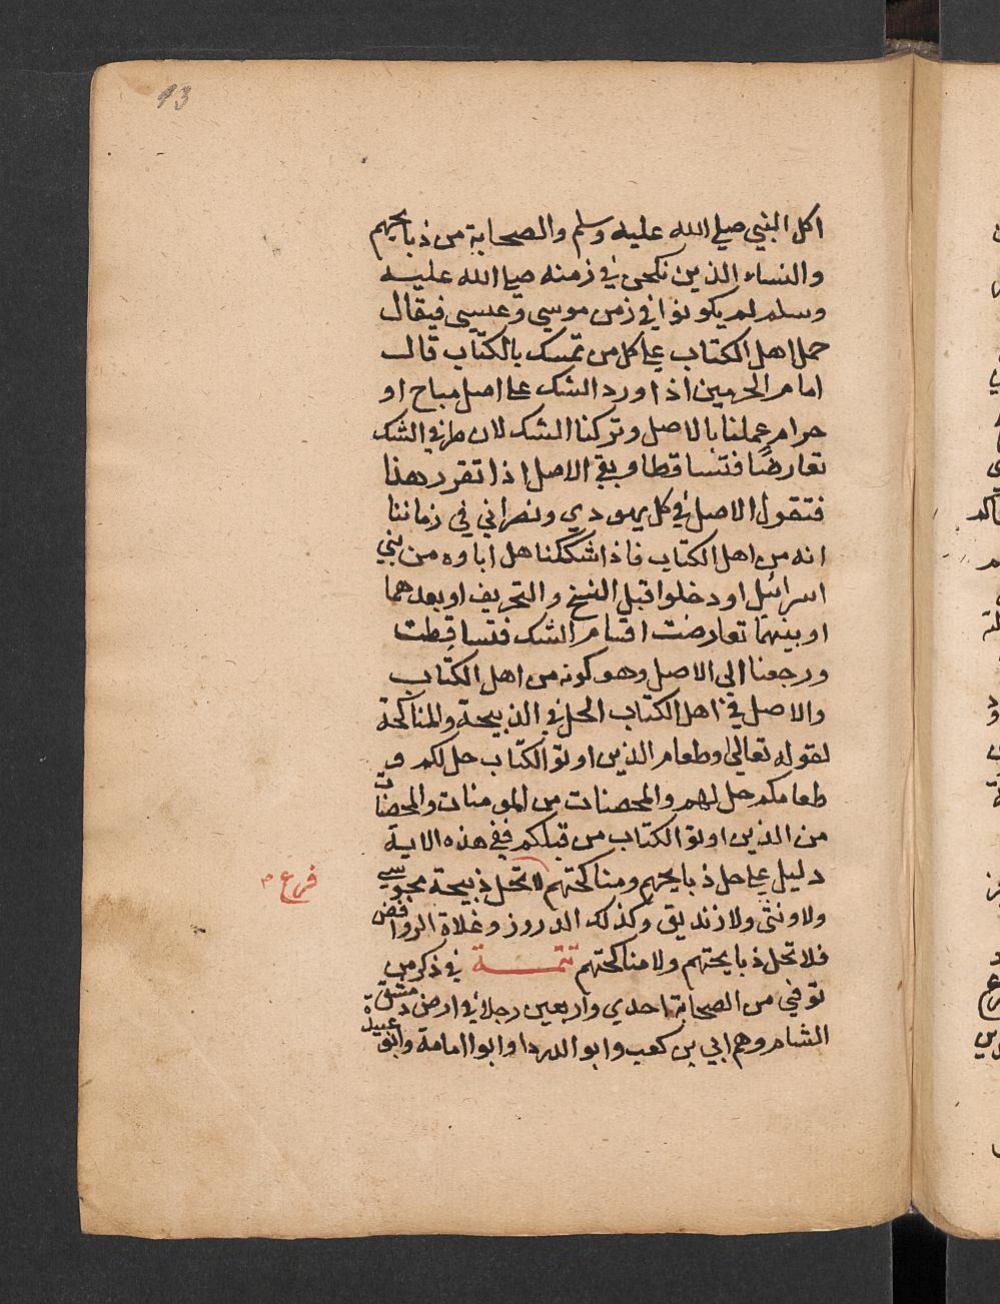 13
اكل النبي صلي الله عليه وسلم والصحابة من ذبايحهم
والنساء الذين نكحى في زمنه صلي الله عليه
وسلم لم يكونوا في زمن موسي وعيسي فيقال
حمل اهل الكتاب علي كل من تمسك بالكتاب قال
امام الحرمين اذا ورد الشك علي اصل مباح او
حرام عملنا بالاصل وتركنا الشك لان طرفي الشك
تعارضا فتساقطا وبقي الاصل اذا تقرر هذا
فتقول الاصل في كل يهودي ونصراني في زماننا
انه من اهل الكتاب فاذا شككنا هل اباوه من بني
اسرائيل او دخلوا قبل النسخ والتحريف او بعدهما
او بينهما تعارضت اقسام الشك فتساقطت
ورجعنا الي الاصل وهو كونه من اهل الكتاب
والاصل في اهل الكتاب الحل في الذبيحة والمناكحة
لقوله تعالي وطعام الذين اوتوا الكتاب حل لكم و
طعامكم حل لهم والمحصنات من المومنات والمحصنات
من الذين اوتوا الكتاب من قبلكم ففي هذه الاية
دليل علي حل ذبايحهم ومناكحتهم لا تحل ذبيحة مجوسي
فرع
ولا وثني ولا زنديق وكذلك الدروز وغلاة الروافض
فلا تحل ذبايحتهم ولا مناكحتهم تتمة في ذكر من
توفي من الصحابة احدي واربعين رجلا في ارض دمشق
الشام وهم ابي بن كعب وابو الدردا وابوا امامة وابو عبيدة